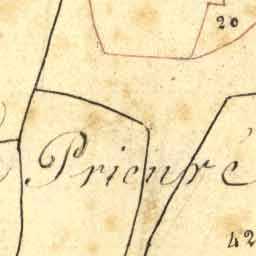 20
Prieuré
42